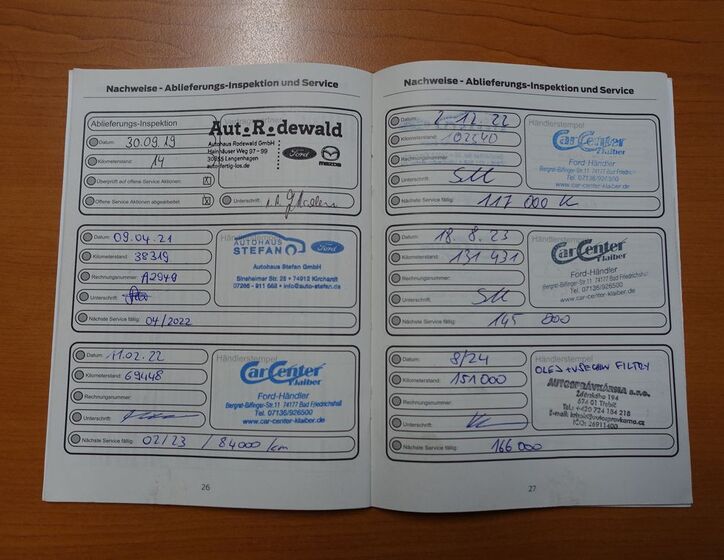 Nachweise - Ablieferungs-Inspektion und Service
Ablieferungs-Inspektion
Datum: 30.09.19
Kilometerstand: 14
Überprüft auf offene Service Aktionen: X
Offene Service Aktionen abgearbeitet: X
Aut.R.dewald
Autohaus Rodewald GmbH
Hainhäuser Weg 97 - 99
30855 Langenhagen
auto-fertig-los.de
Ford
mazda
Unterschrift:
Datum: 09.04.21
Kilometerstand: 38319
Rechnungsnummer: A2949
Unterschrift:
Nächste Service fällig: 04/2022
AUTOHAUS
STEFAN
Ford
Autohaus Stefan GmbH
Sinsheimer Str. 25 • 74912 Kirchardt
07266 - 911 668 • info@auto-stefan.de
Datum: 11.02.22
Kilometerstand: 69448
Rechnungsnummer:
Unterschrift:
Nächste Service fällig: 02/23 / 84000 km
Händlerstempel
CarCenter
Klaiber
Ford-Händler
Bergrat-Bilfinger-Str.11 74177 Bad Friedrichshall
Tel. 07136/926500
www.car-center-klaiber.de
26
Nachweise - Ablieferungs-Inspektion und Service
Datum: 2.12.22
Kilometerstand: 102540
Rechnungsnummer:
Unterschrift:
Nächste Service fällig: 117 000 K
Händlerstempel
CarCenter
Klaiber
Ford-Händler
Bergrat-Bilfinger-Str.11 74177 Bad Friedrichshall
Tel. 07136/926500
www.car-center-klaiber.de
Datum: 18.8.23
Kilometerstand: 131 431
Rechnungsnummer:
Unterschrift:
Nächste Service fällig: 145 000
Händlerstempel
CarCenter
Klaiber
Ford-Händler
Bergrat-Bilfinger-Str.11 74177 Bad Friedrichshall
Tel. 07136/926500
www.car-center-klaiber.de
Datum: 8/24
Kilometerstand: 151000
Rechnungsnummer:
Unterschrift:
Nächste Service fällig: 166 000
Händlerstempel
OLEJ + VŠECHNY FILTRY
AUTOSPRÁVKÁRNA s.r.o.
194
674 01 Třebíč
Tel.: +420 724 184 218
E-mail:
IČO: 26911400
27